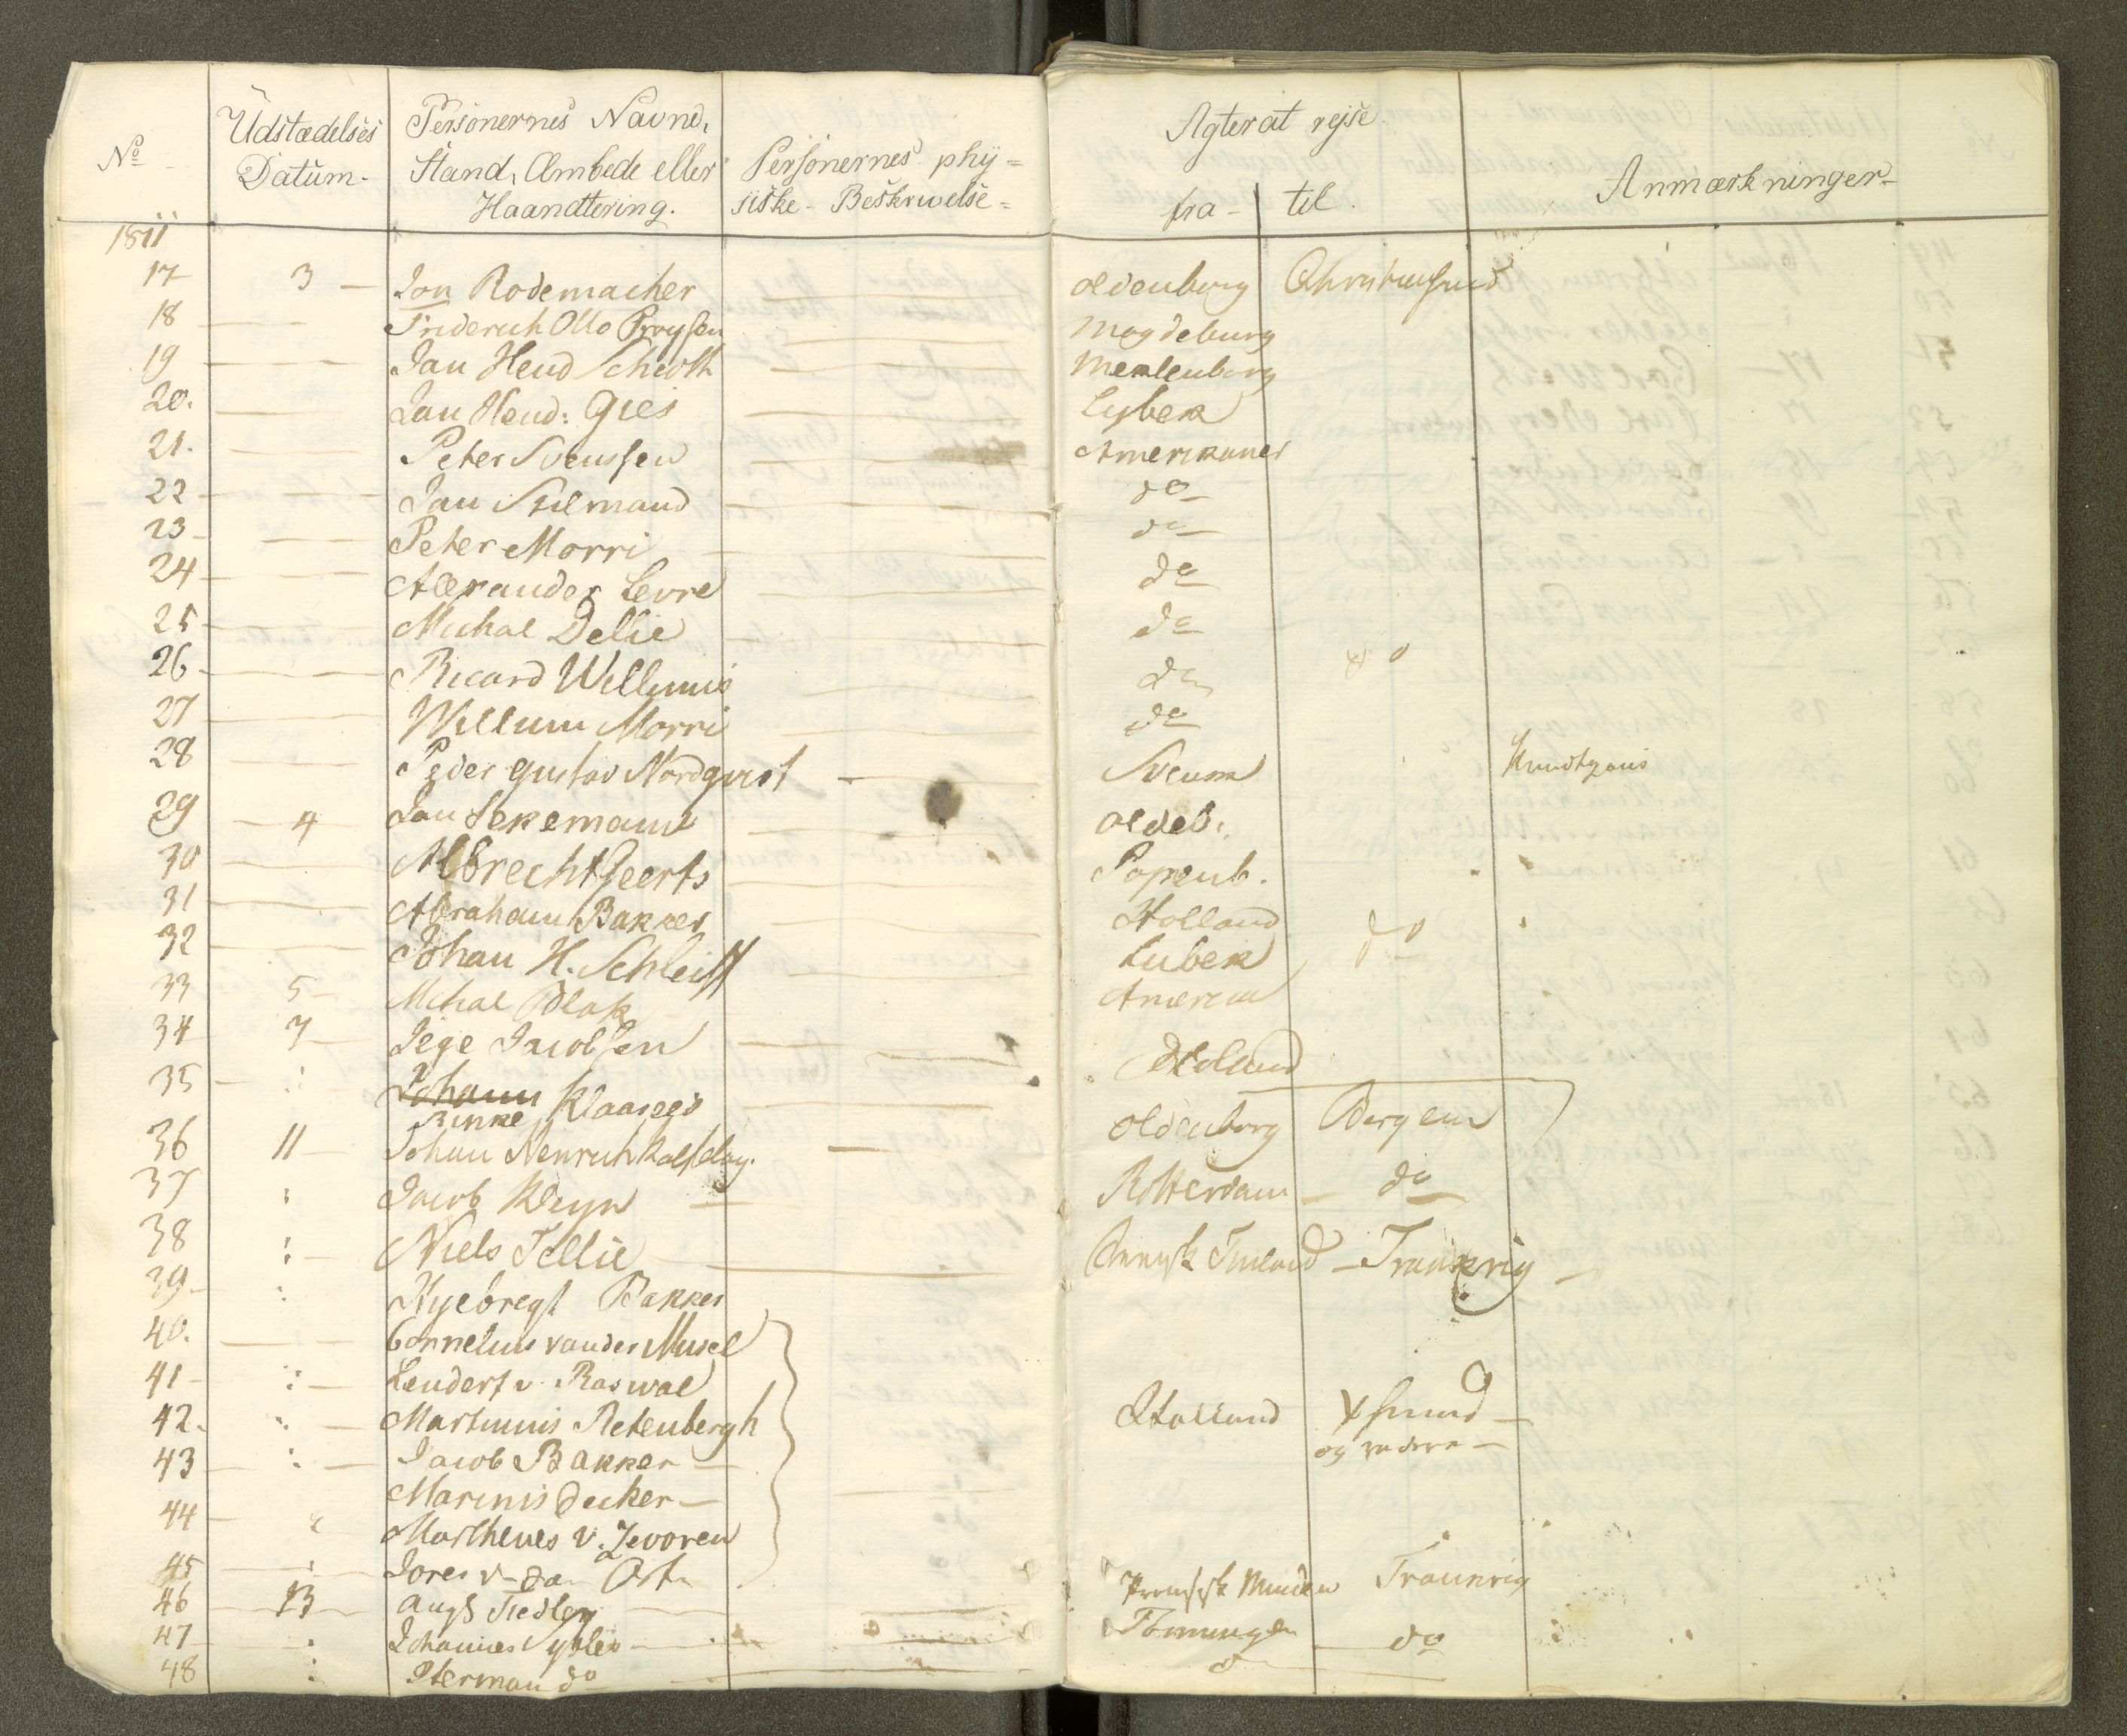 No
Udstædelses Datum.
Personernes Navne, Stand, Ambede eller Haandtering.
Personernes phÿ= siske Beskrivelse=
Agter at rejse
fra - til.
Anmærkninger
1811
17 3 Jon Rodemacher Oldenburg Christiansund
18 Friderich Otto Proysen Magdeburg
19 Jan Hend Scheoth Meklenburg
20. Jan Hend: Gies Lybek
21. Peter Svenssen Amerikaner
22 Jan Stilmand do
23 Peter Morri do
24 Alexander Levre do
25 Michal Dellie do
26 Ricard Willums do do
27 Willum Morri do
28 Peder Gustav Nordqvist Svensk
29 4 Jan Sekemann Oldeb.
30 Albrecht Geerts Papenb.
31 Abraham Bakker Holland
32 Johan H. Schleiff Lubek do
33 5 Michal Blak America
34 7 Jege Jacobsen Holland
35 Johann Klaasees
Rinke
36 11 Johan Henrich Kalfslag. Oldenborg Bergen
37 Jacob Kleyn Rotterdam do
38 Niels Tellie Finland Frankrig
39 Hyebregt Bakker
40. Cornelius vander Musel
41 Lendert v. Raswal
42. Martinus Retenbergh Holland Xsund
43 Jacob Bakker og videre
Marinis Decker
44 Marthenes v. Zevoren
45 Jores v-da
46 13 Augs Fiedler Preussisk Minden Frankrig
47 Johannes do
48 Herman do